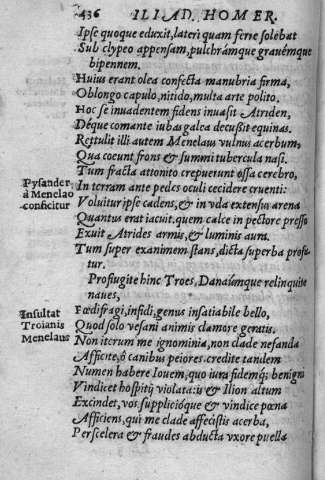 436 ILIAD. HOMER.
Ipse quoque eduxit, lateri quam ferre solebat
Sub clypeo appensam, pulchrámque grauémque
bipennem.
Huius erant olea confecta manubria firma,
Oblongo capulo, nitido, multa arte polito,
Hoc se inuadentem fidens inuasit Atriden,
Déque comante iubas galea decussit equinas.
Rettulit illi autem Menelaus vulnus acerbum,
Qua coeunt frons & summi tubercula nasi.
Tum fracta attonito crepuerunt ossa cerebro,
Pysander
à Menelao
conficitur
In terram ante pedes oculi cecidere cruenti:
Voluitur ipse cadens, & in vda extensus arena
Quantus erat iacuit, quem calce in pectore presso
Exuit Atrides armis, & luminis aura.
Tum super exanimem stans, dicta superba profu-
tur.
Profiugite hinc Troes, Danaûmque relinquite
naues,
Insultat
Troianis
Menelaus
Fœdifragi, infidi, genus insatiabile bello,
Quod solo vesani animis clamore geratis.
Non iterum me ignominia, non clade nefanda
Afficite, ô canibus peiores. credite tandem
Numen habere Iouem, quo iura fidemq; benigni
Vindicet hospitij violatæ: is & Ilion altum
Excindet, vos supplicióque & vindice pœna
Afficiens, qui me clade affecistis acerba,
Per scelera & fraudes abducta vxore puella